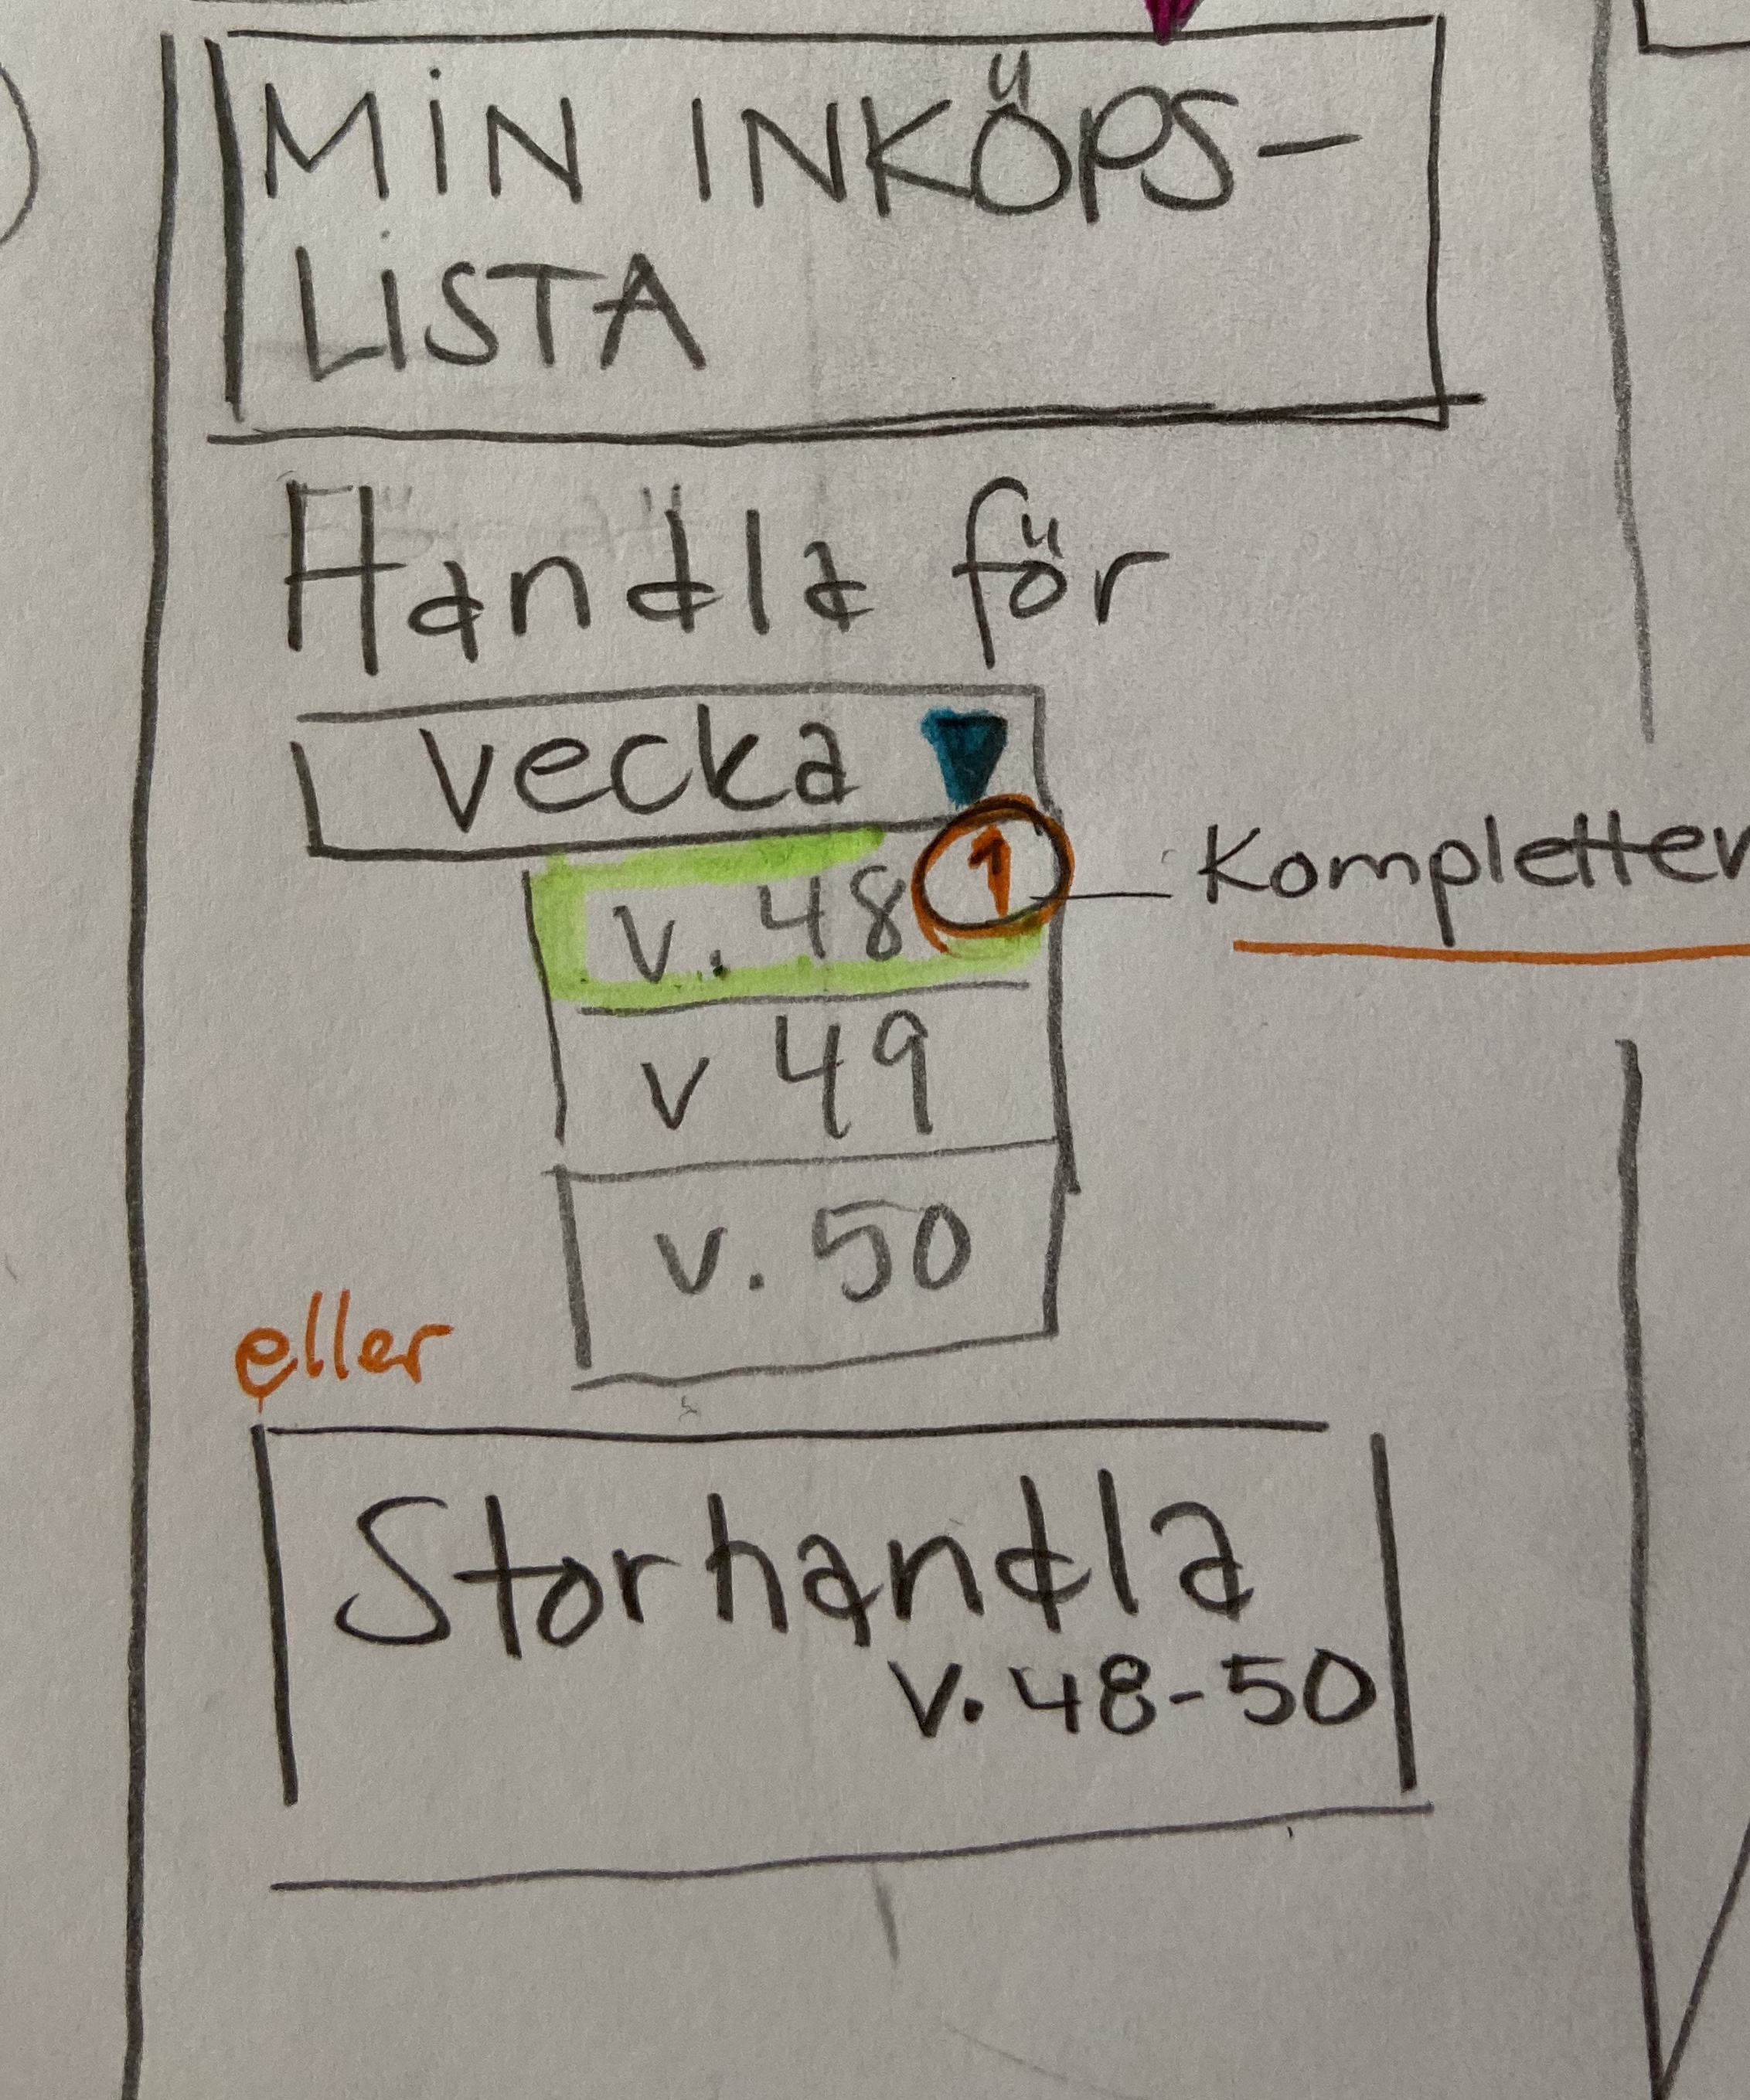 MIN INKÖPS-
LISTA
Handla för
vecka
v. 48
v 49
v. 50
eller
Storhandla
v. 48-50